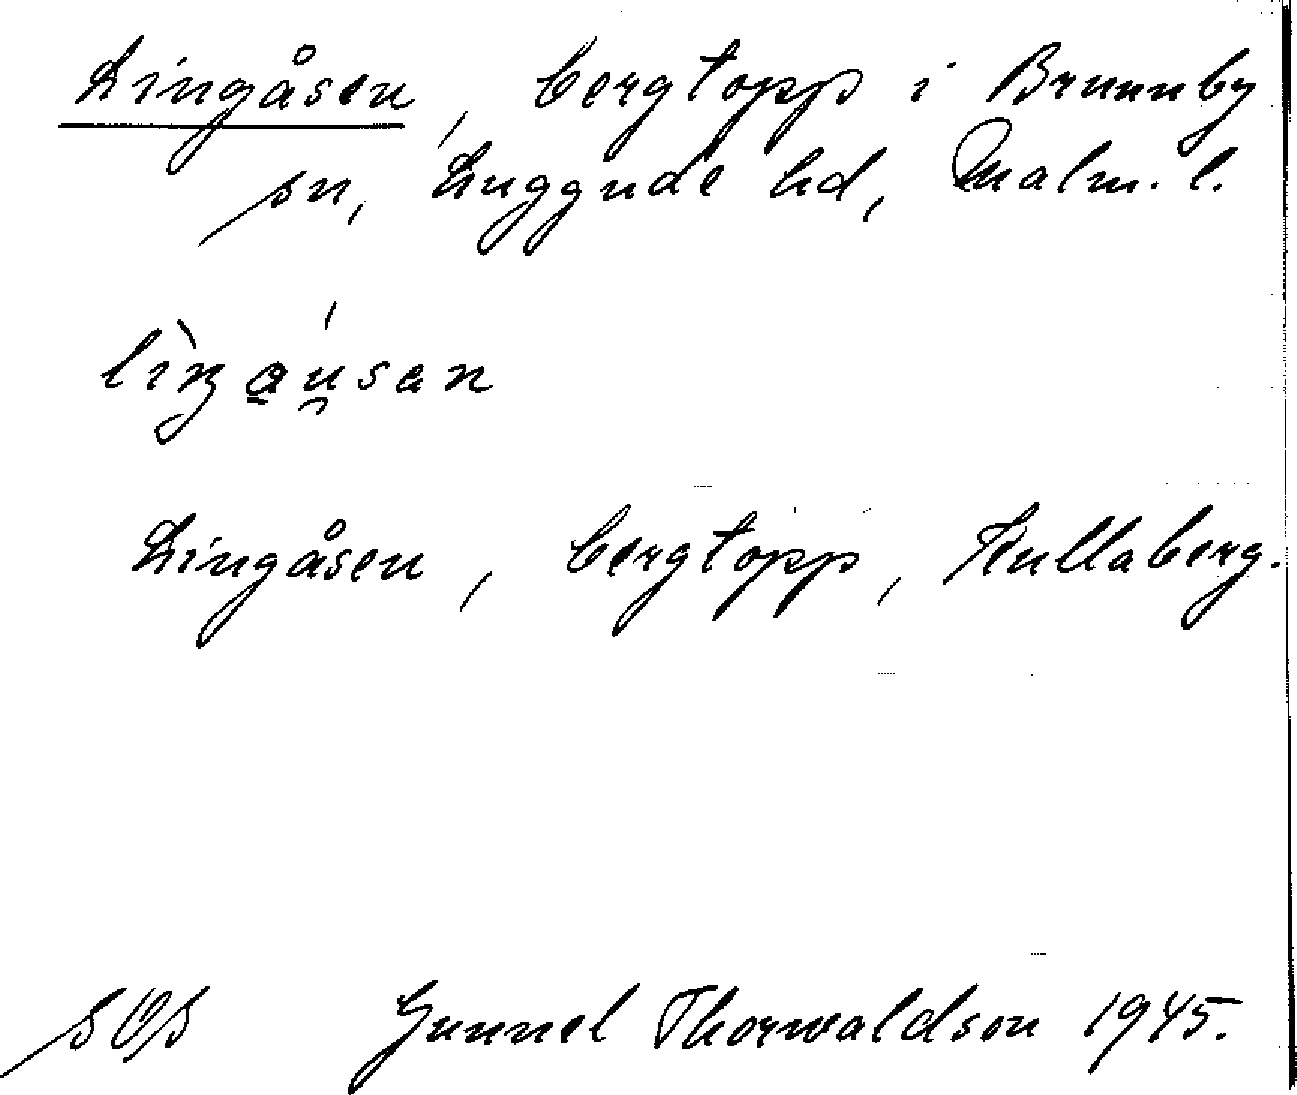 Lingåsen, bergtopp i Brunnby
sn, Luggude hd, Malm. l.
lìŋáu̯san
Lingåsen, bergtopp, Kullaberg.
Gunnel Thorwaldson 1945.